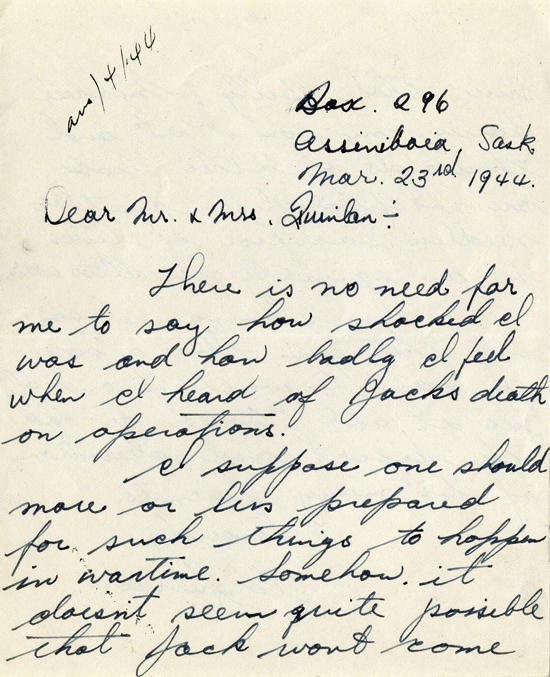 ans/4/44
Box. 296
Assiniboia, Sask.
Mar. 23rd 1944.
Dear Mr. & Mrs. Quinlan:-
There is no need for
me to say how shocked I
was and how badly I feel
when I heard of Jacks death
on operations.
I suppose one should
more or less prepared
for such things to happen
in wartime. Somehow. it
doesnt seem quite possible
that Jack wont come